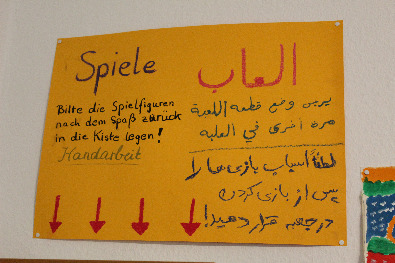 Spiele
Bitte die Spielfiguren
nach dem Spaß zurück
in die Kiste legen!
Handarbeit
العاب
يرجى وضع قطعه اللعبة
مرة اخرى في العلبه
لطفاً اسباب بازی ها را
پس از بازی کردن
در جعبه قرار دهید!